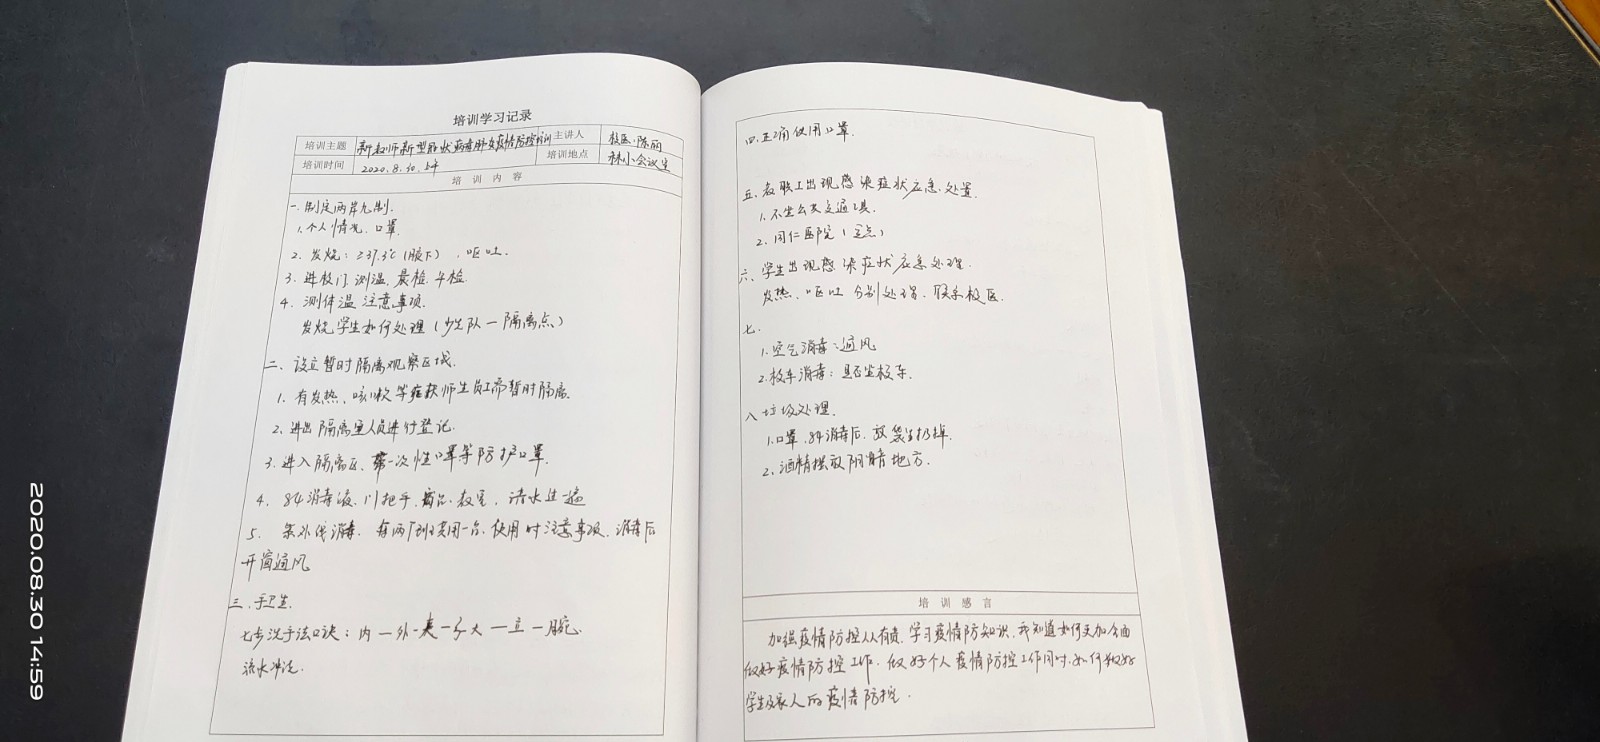 培训学习记录
培训主题 新教师新型冠状病毒肺炎疫情防控培训 主讲人 校医:陈丽
培训时间 2020.8.30.上午 培训地点 林小会议室
培 训 内 容
一.制定两岸九制.
1.个人情况.口罩.
2.发烧:≥37.3℃(腋下).呕吐.
3.进校门测温.晨检.午检.
4.测体温注意事项.
发烧学生如何处理(少先队一隔离点)
二、设立暂时隔离观察区域.
1.有发热、咳嗽等症状师生员工需暂时隔离.
2.进出隔离室人员进行登记.
3.进入隔离区,第一次性口罩等防护口罩.
4.84消毒液.门把手..教室,清水过一遍
5.紫外线消毒.每两个班共用一台.使用时注意事项.消毒后
开窗通风
三.手卫生.
七步洗手法口诀:内一外一夹一弓大一立一腕.
流水冲洗.
四.正确使用口罩.
五.教职工出现感染症状应急处置.
1.不坐公共交通工具.
2.同仁医院(定点)
六、学生出现感染症状应急处理.
发热、呕吐分别处理.联系校医.
七.
1.空气消毒:通风
2.校车消毒:是否坐校车.
八垃圾处理.
1.口罩.84消毒后.放袋里扔掉.
2.酒精摆放阴凉地方.
培 训 感 言
加强疫情防控人人有责.学习疫情防知识.我知道如何更加全面
做好疫情防控工作.做好个人疫情防控工作同时.如何做好
学生及家人的疫情防控.
2020.08.30 14:59